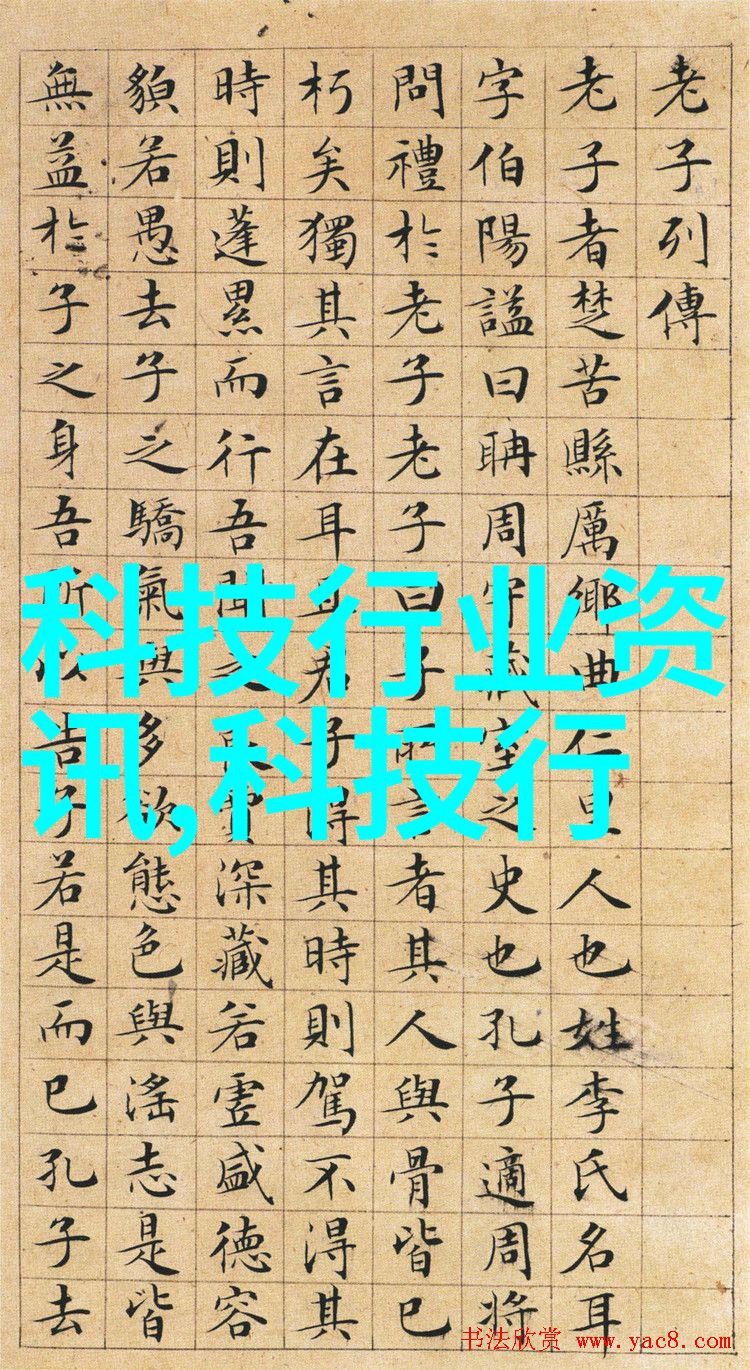 老子列傳
老子者楚苦縣厲鄉曲仁里人也姓李氏名耳
字伯陽謚曰聃周守藏室之史也孔子適周將
問禮於老子老子曰子所言者其人與骨皆已
朽矣獨其言在耳且君子得其時則駕不得其
時則蓬累而行吾聞之良賈深藏若虛盛德容
貌若愚去子之驕氣與多欲態色與淫志是皆
無益於子之身吾所以告子若是而已孔子去
科技行业资
讯,科技行
书法欣赏 www.yac8.com